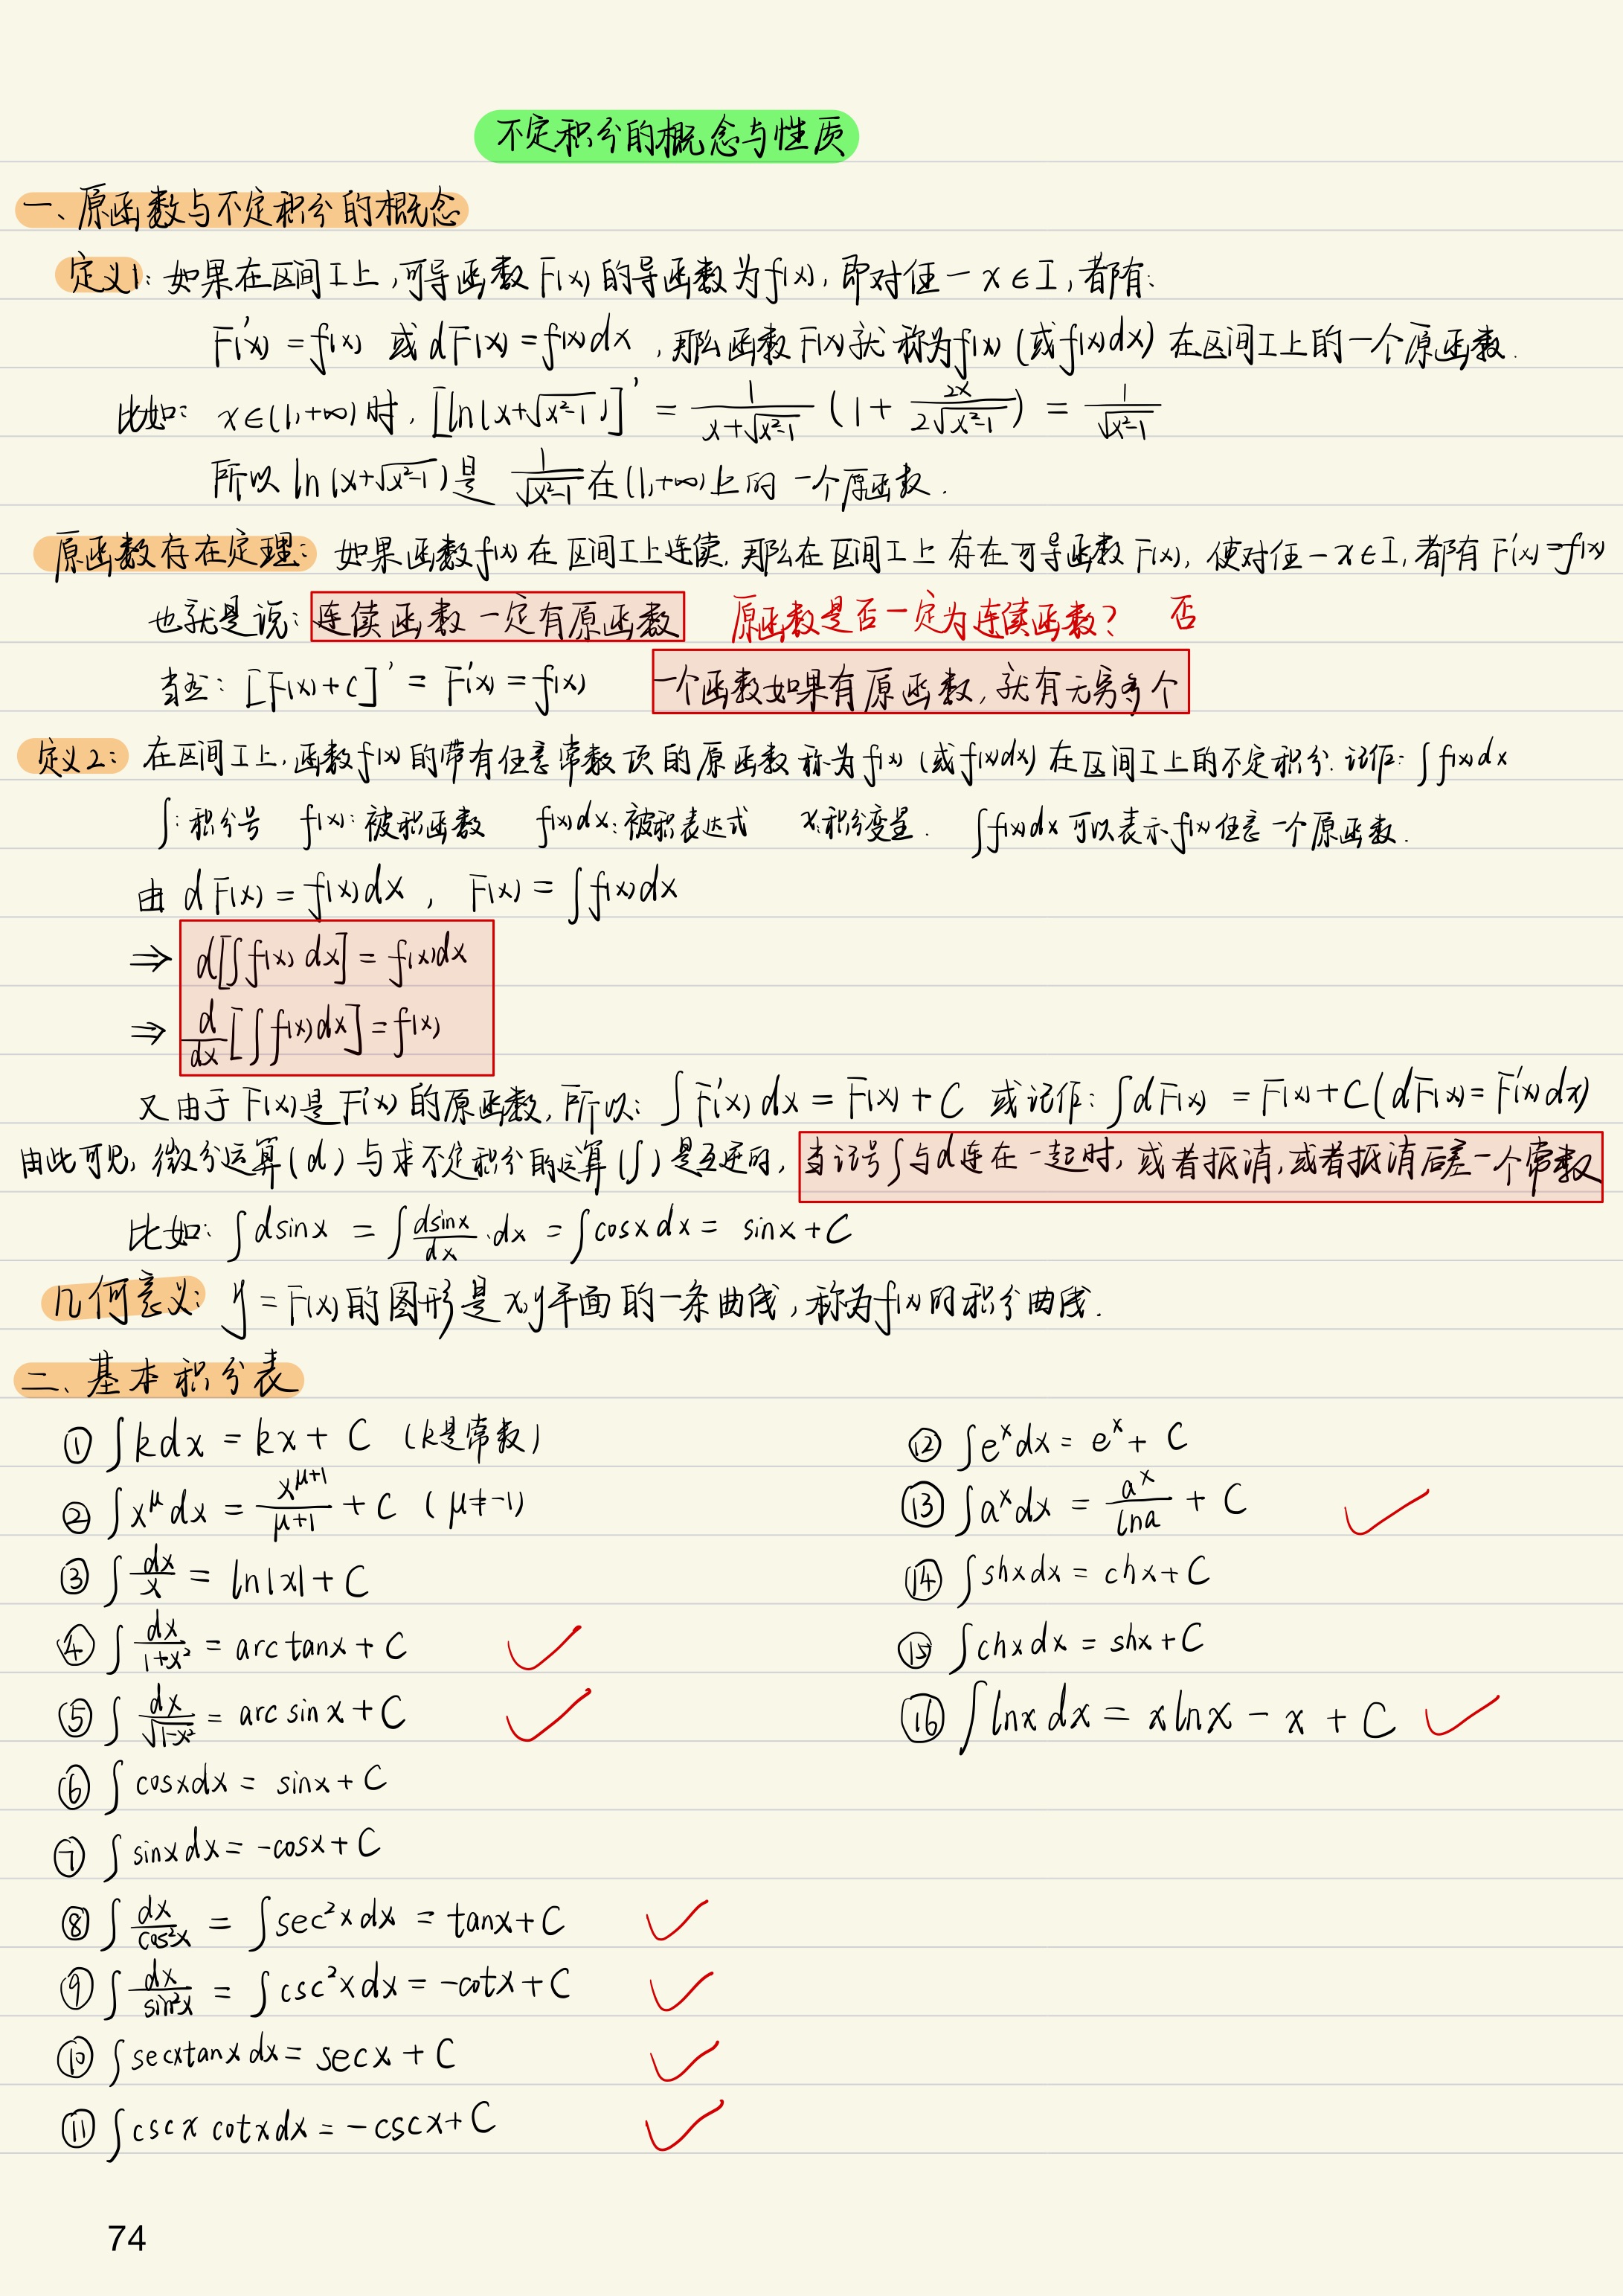 不定积分的概念与性质
一、原函数与不定积分的概念
定义1: 如果在区间I上,可导函数F(x)的导函数为f(x),即对任一x∈I,都有:
F'(x) = f(x) 或 dF(x) = f(x)dx ,那么函数F(x)就称为f(x) (或f(x)dx) 在区间I上的一个原函数.
比如: x∈(1,+∞)时, [ln(x+√(x²-1))]' = 1/(x+√(x²-1)) (1 + 2x/(2√(x²-1))) = 1/√(x²-1)
所以 ln(x+√(x²-1))是 1/√(x²-1) 在(1,+∞)上的一个原函数.
原函数存在定理: 如果函数f(x)在区间I上连续,那么在区间I上存在可导函数F(x),使对任一x∈I,都有F'(x)=f(x)
也就是说: 连续函数一定有原函数 原函数是否一定为连续函数? 否
当然: [F(x)+C]' = F'(x) = f(x) 一个函数如果有原函数,就有无穷多个
定义2: 在区间I上,函数f(x)的带有任意常数项的原函数称为f(x) (或f(x)dx)在区间I上的不定积分.记作: ∫f(x)dx
∫:积分号 f(x):被积函数 f(x)dx:被积表达式 x:积分变量. ∫f(x)dx可以表示f(x)任意一个原函数.
由 dF(x) = f(x)dx , F(x) = ∫f(x)dx
⇒ d[∫f(x)dx] = f(x)dx
⇒ d/dx [∫f(x)dx] = f(x)
又由于F(x)是F'(x)的原函数,所以: ∫F'(x)dx = F(x) + C 或记作: ∫dF(x) = F(x)+C (dF(x)=F'(x)dx)
由此可见,微分运算(d)与求不定积分的运算(∫)是互逆的,当记号∫与d连在一起时,或者抵消,或者抵消后差一个常数
比如: ∫dsinx = ∫ dsinx/dx ·dx = ∫cosxdx = sinx+C
几何意义: y = F(x)的图形是x,y平面的一条曲线,称为f(x)的积分曲线.
二、基本积分表
① ∫kdx = kx + C (k是常数)
② ∫x^μ dx = x^(μ+1)/(μ+1) + C (μ≠-1)
③ ∫dx/x = ln|x| + C
④ ∫dx/(1+x²) = arctanx + C
⑤ ∫dx/√(1-x²) = arcsinx + C
⑥ ∫cosxdx = sinx + C
⑦ ∫sinxdx = -cosx + C
⑧ ∫dx/cos²x = ∫sec²xdx = tanx+C
⑨ ∫dx/sin²x = ∫csc²xdx = -cotx+C
⑩ ∫secxtanxdx = secx + C
⑪ ∫cscxcotxdx = -cscx+C
⑫ ∫e^x dx = e^x + C
⑬ ∫a^x dx = a^x/lna + C
⑭ ∫shxdx = chx+C
⑮ ∫chxdx = shx+C
⑯ ∫lnxdx = xlnx - x + C
74